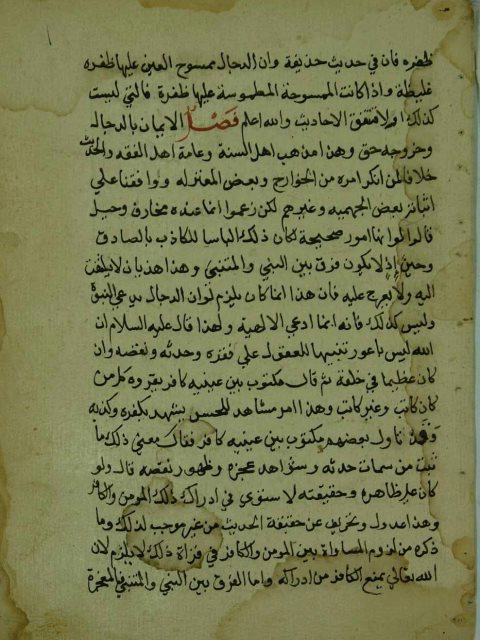 ظفره فان في حديث حذيفة وان الدجال ممسوح العين عليها ظفره
غليظة واذا كانت الممسوحة المطموسة عليها ظفرة فالتي ليست
كذلك اولا فتتفق الاحاديث والله اعلم فصل الايمان بالدجال
وخروجه حق وهذا مذهب اهل السنة وعامة اهل الفقه والحديث
خلافا لمن انكر امره من الخوارج وبعض المعتزله ووافقنا علي
اثباته بعض الجهميه وغيرهم لكن زعموا ان ما عنده مخارق وحيل
قالوا لو انها امور صحيحة لكان ذلك الباسا للكاذب بالصادق
وحينئذ لا يكون فرق بين النبي والمتنبي وهذا هذيان لا يلتفت
اليه ولا يعرج عليه فان هذا انما كان يلزم لو ان الدجال يدعي النبوة
وليس كذلك فانه انما ادعي الالهية ولهذا قال عليه السلام ان
الله ليس باعور تنبيها للعقول علي فقره وحدثه ونقصه وان
كان عظيما في خلقه ثم قال مكتوب بين عينيه كافر يقروه كل مومن
كان كاتب وغير كاتب وهذا امر مشاهد للحس يشهد بكفره وكذبه
وقد تاول بعضهم مكتوب بين عينيه كافر فقال معني ذلك ما
ثبت من سمات حدثه وشواهد عجزه وظهور نقصه قال ولو
كان علي ظاهره وحقيقته لاستوي في ادراك ذلك المومن والكافر
وهذا عدول وتحريف عن حقيقة الحديث من غير موجب لذلك وما
ذكره من لزوم المساواة بين المومن والكافر في قراة ذلك لا يلزم لان
الله تعالي يمنع الكافر من ادراكه واما الفرق بين النبي والمتنبي فالمعجزة